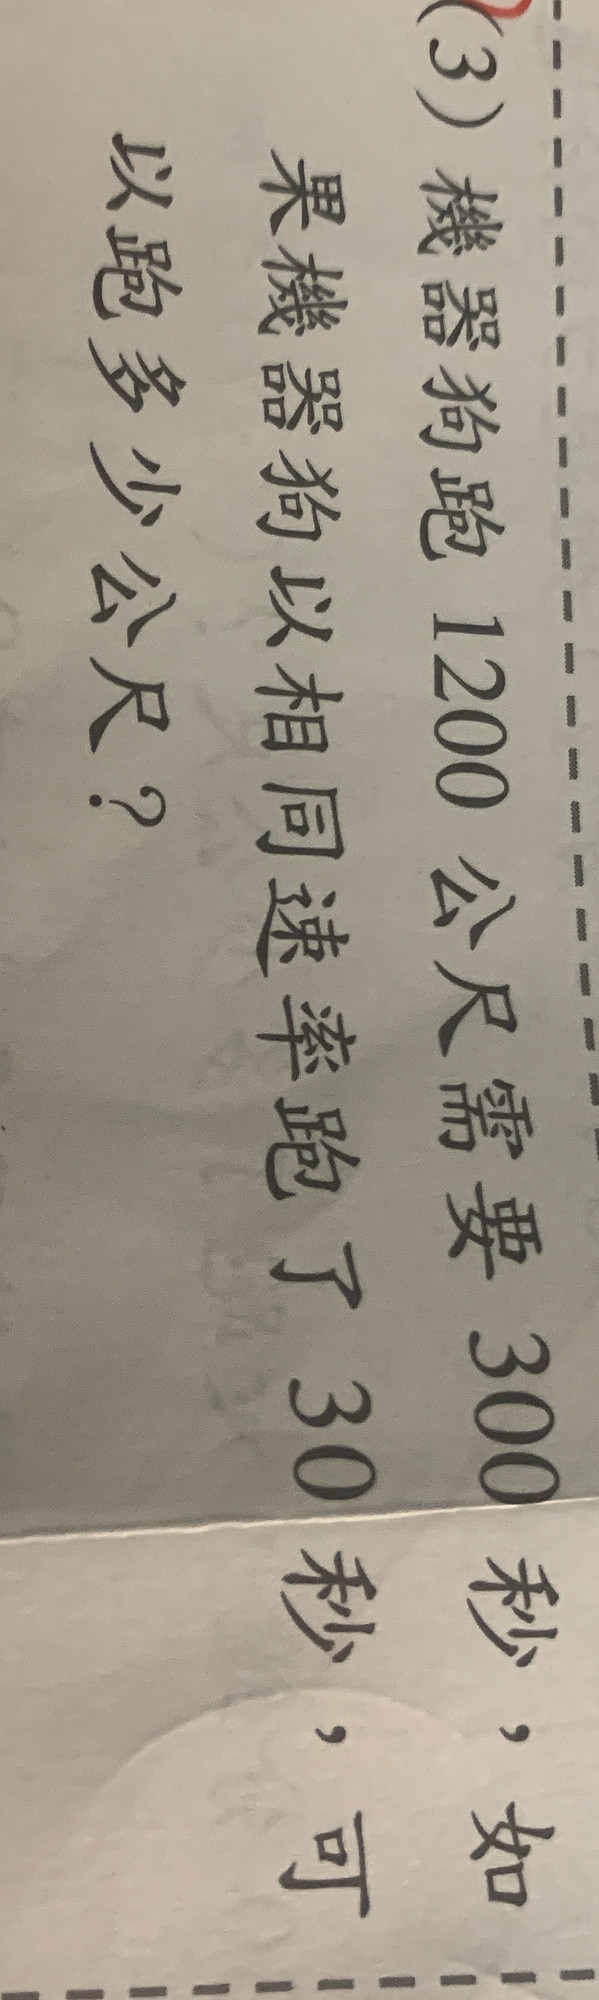 (3) 機器狗跑 1200 公尺需要 300 秒，如
果機器狗以相同速率跑了 30 秒，可
以跑多少公尺？